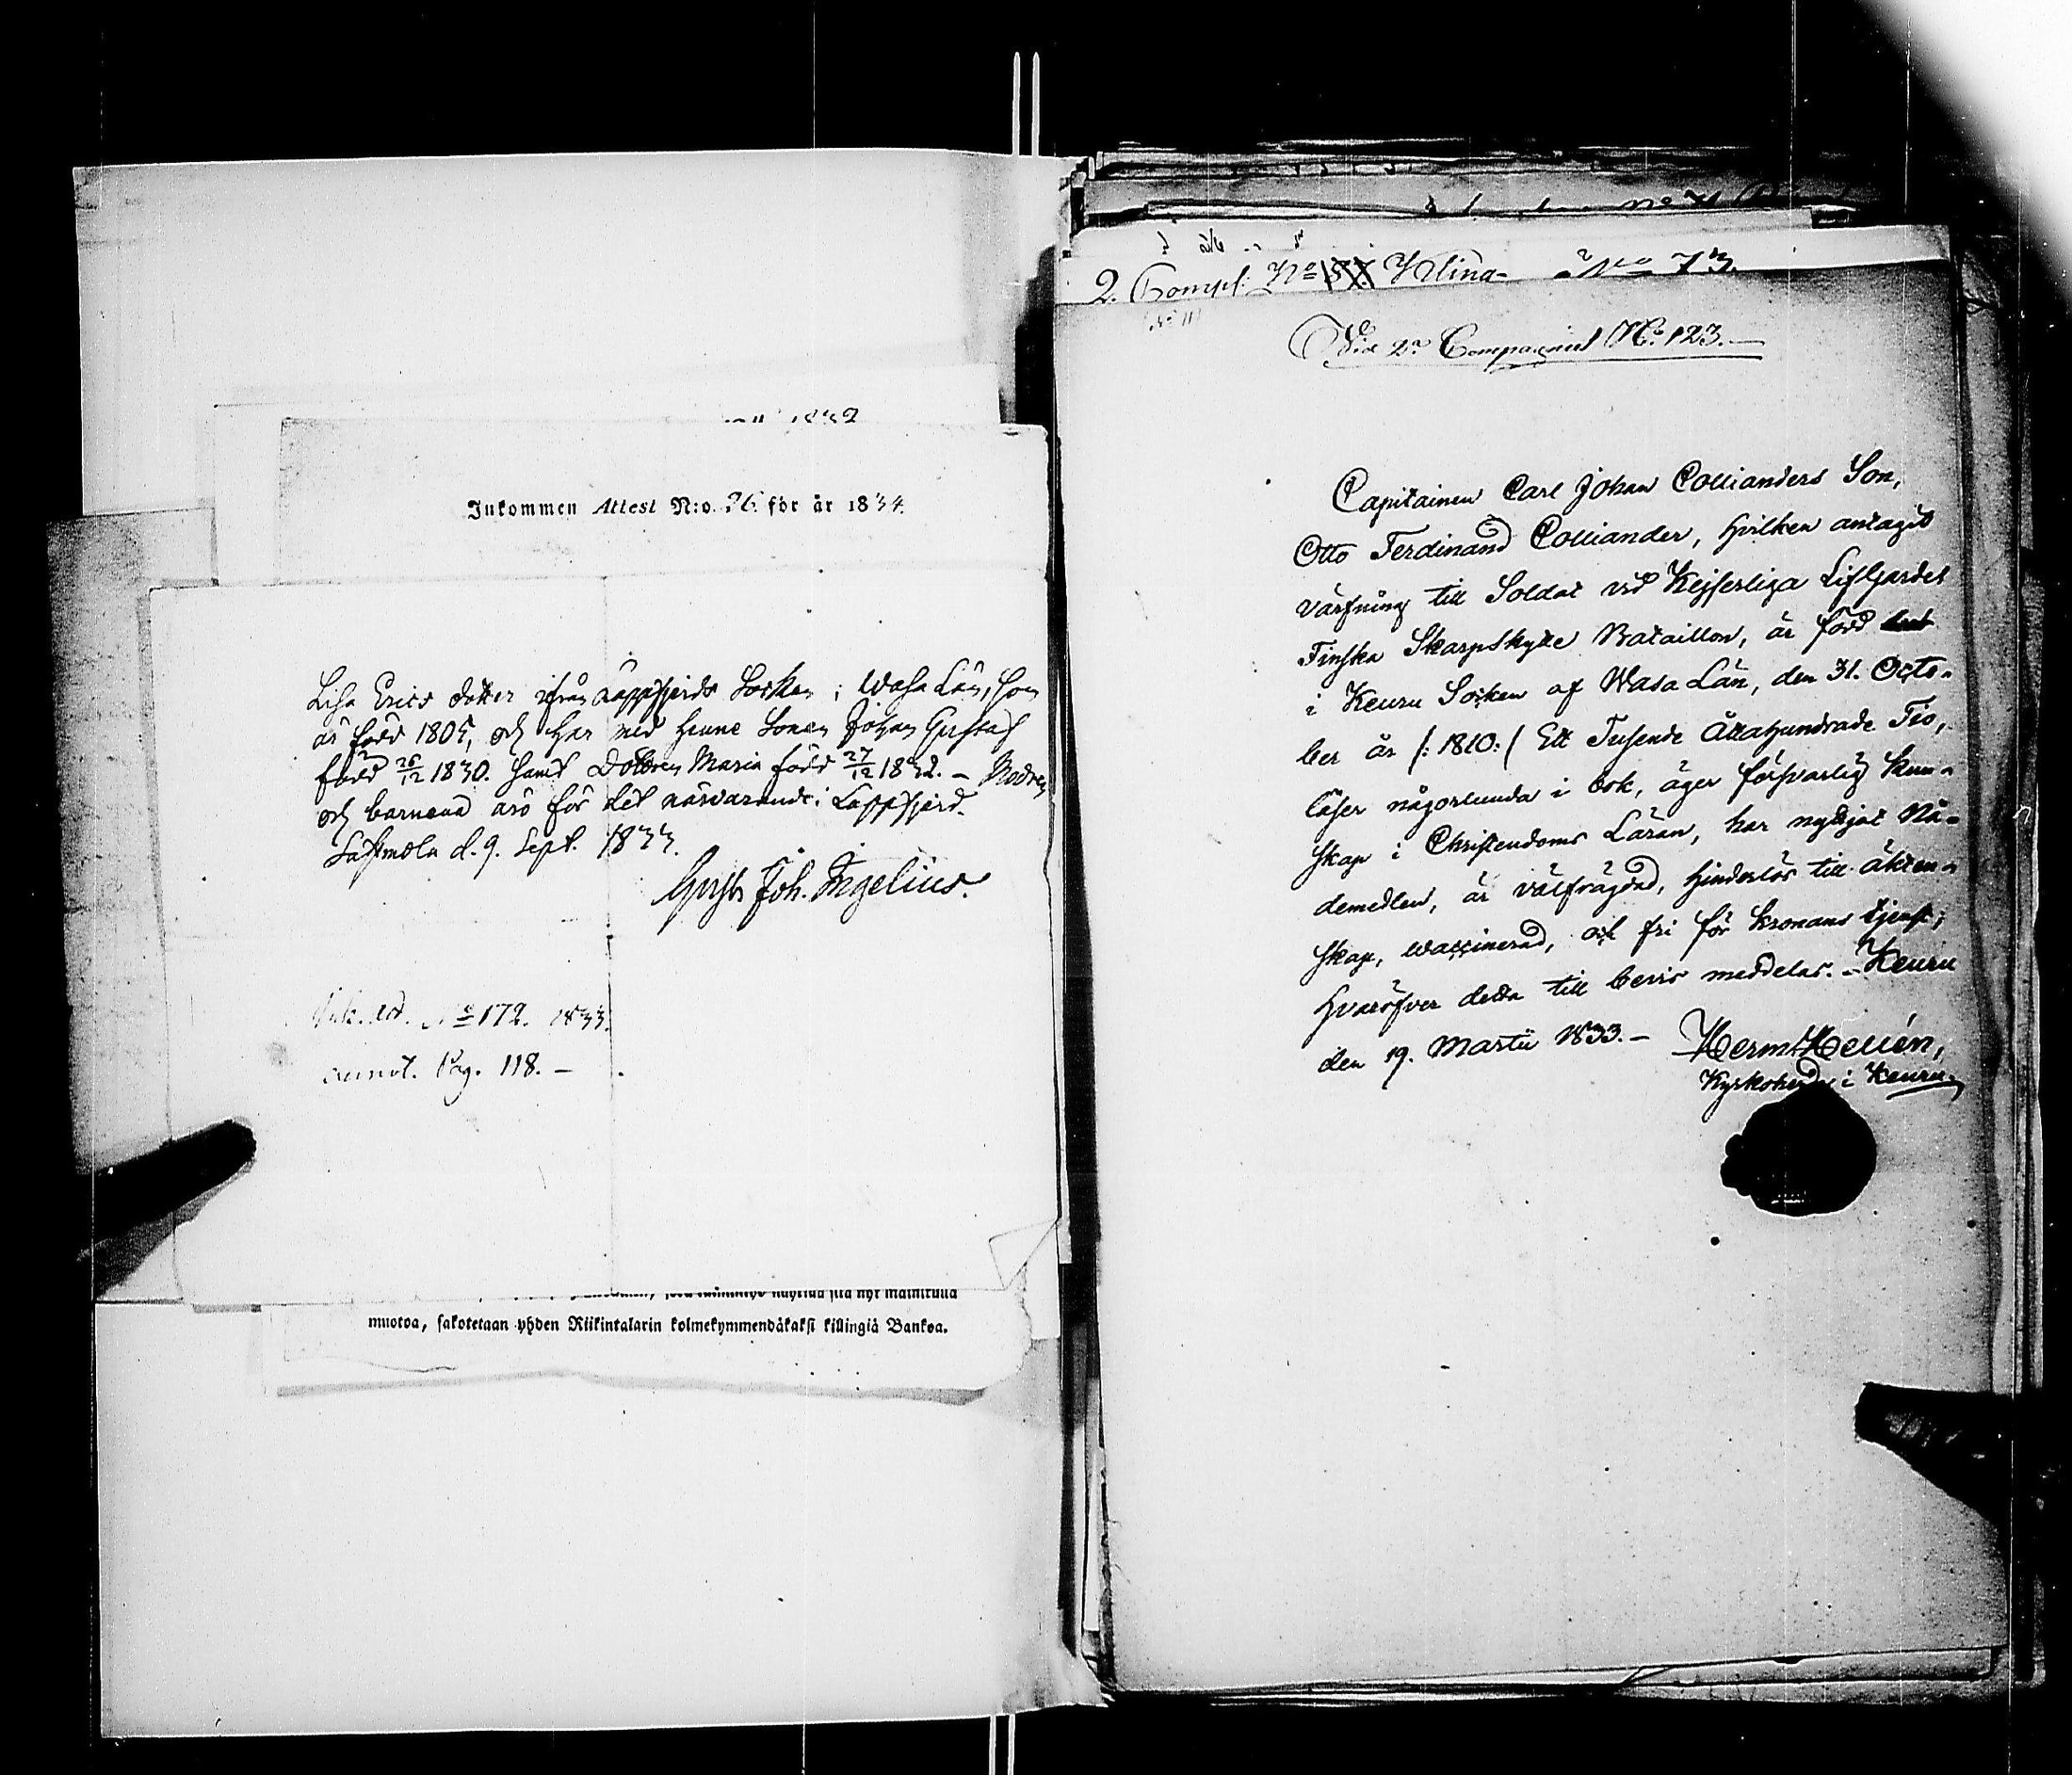 1832
Inkommen Attest N:o. 26 för år 1834.
Lisa Erics dotter ifrån Lappfjerds Socken i Wasa Län, som
är född 1805, och har med henne Sonen Johan Gustaf
född 26/12 1830. samt Dottren Maria född 27/12 1832. – Modren
och barnena äro för det närvarande i Lappfjerd.
Sastmola d. 9. Sept. 1833.
Gust. Joh. Ingelius.
Ink. Att. No 172. 1833.
annot. Pag. 118. –
muotoa, sakotetaan yhden Riikintalarin kolmekymmendäkaksi killingiä Bankoa.
No 71
2. Comp: No No 73.
Vid 2a Compagniet No. 123.
Capitainen Carl Johan Collianders Son,
Otto Ferdinand Colliander, hvilken antagit
värfning till Soldat vid Kejserliga Lifgardes
Finska Skarpskytte Bataillon, är född
i Keuru Socken af Wasa Län, den 31. Octo-
ber år /: 1810:/ Ett Tusende Åttahundrade Tio,
läser någorlunda i bok, äger försvarlig kun-
skap i Christendoms Läran, har nyttjat Nå-
demedlen, är välfrägdad, hinderlös till äkten-
skap, waccinerad, och fri för kronans tjenst;
hvaröfver detta till bevis meddelas. – Keuru
den 19. Martii 1833. – Herm. Hellén,
Kyrkoherde i Keuru.